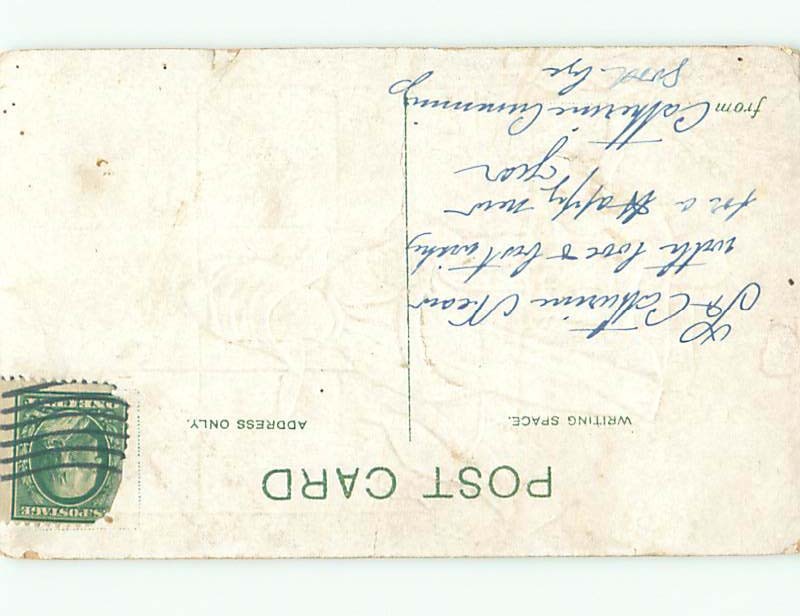 POST CARD
WRITING SPACE.
ADDRESS ONLY.
To Catherine
with love & best wishes
for a Happy new
year
from Catherine Cumming
Good bye
S.POSTAGE